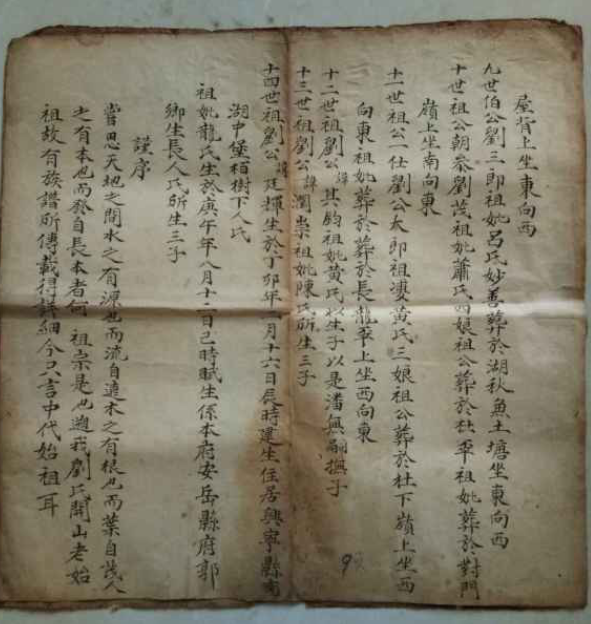 屋背上坐東向西
九世伯公劉三郎祖妣呂氏妙善葬於湖秋魚土塘坐東向西
十世祖公朝叅劉茂祖妣蕭氏四娘祖公葬於杜平祖妣葬於對門
嶺上坐南向東
十一世祖公一仕劉公太郎祖婆黃氏三娘祖公葬於杜下嶺上坐西
向東祖妣葬於葬於長龍平上坐西向東
十二世祖劉公諱其鈞祖妣黃氏以生子以是潘無嗣撫子
十三世祖劉公諱潤崇祖妣陳氏所生三子
十四世祖劉公諱廷輝生於丁卯年八月十六日辰時建生住居興寧縣南
湖中堡栢樹下人氏
祖妣龍氏生於庚午年八月十二日己時賦生係本府安岳縣府郭
鄉生長人氏所生三子
謹序
嘗思天地之間水之有源也而流自遠木之有根也而葉自茂人
之有本也而發自長本者何 祖宗是也廼我劉氏開山老始
祖故有族譜所傳載得詳細今只言中代始祖耳